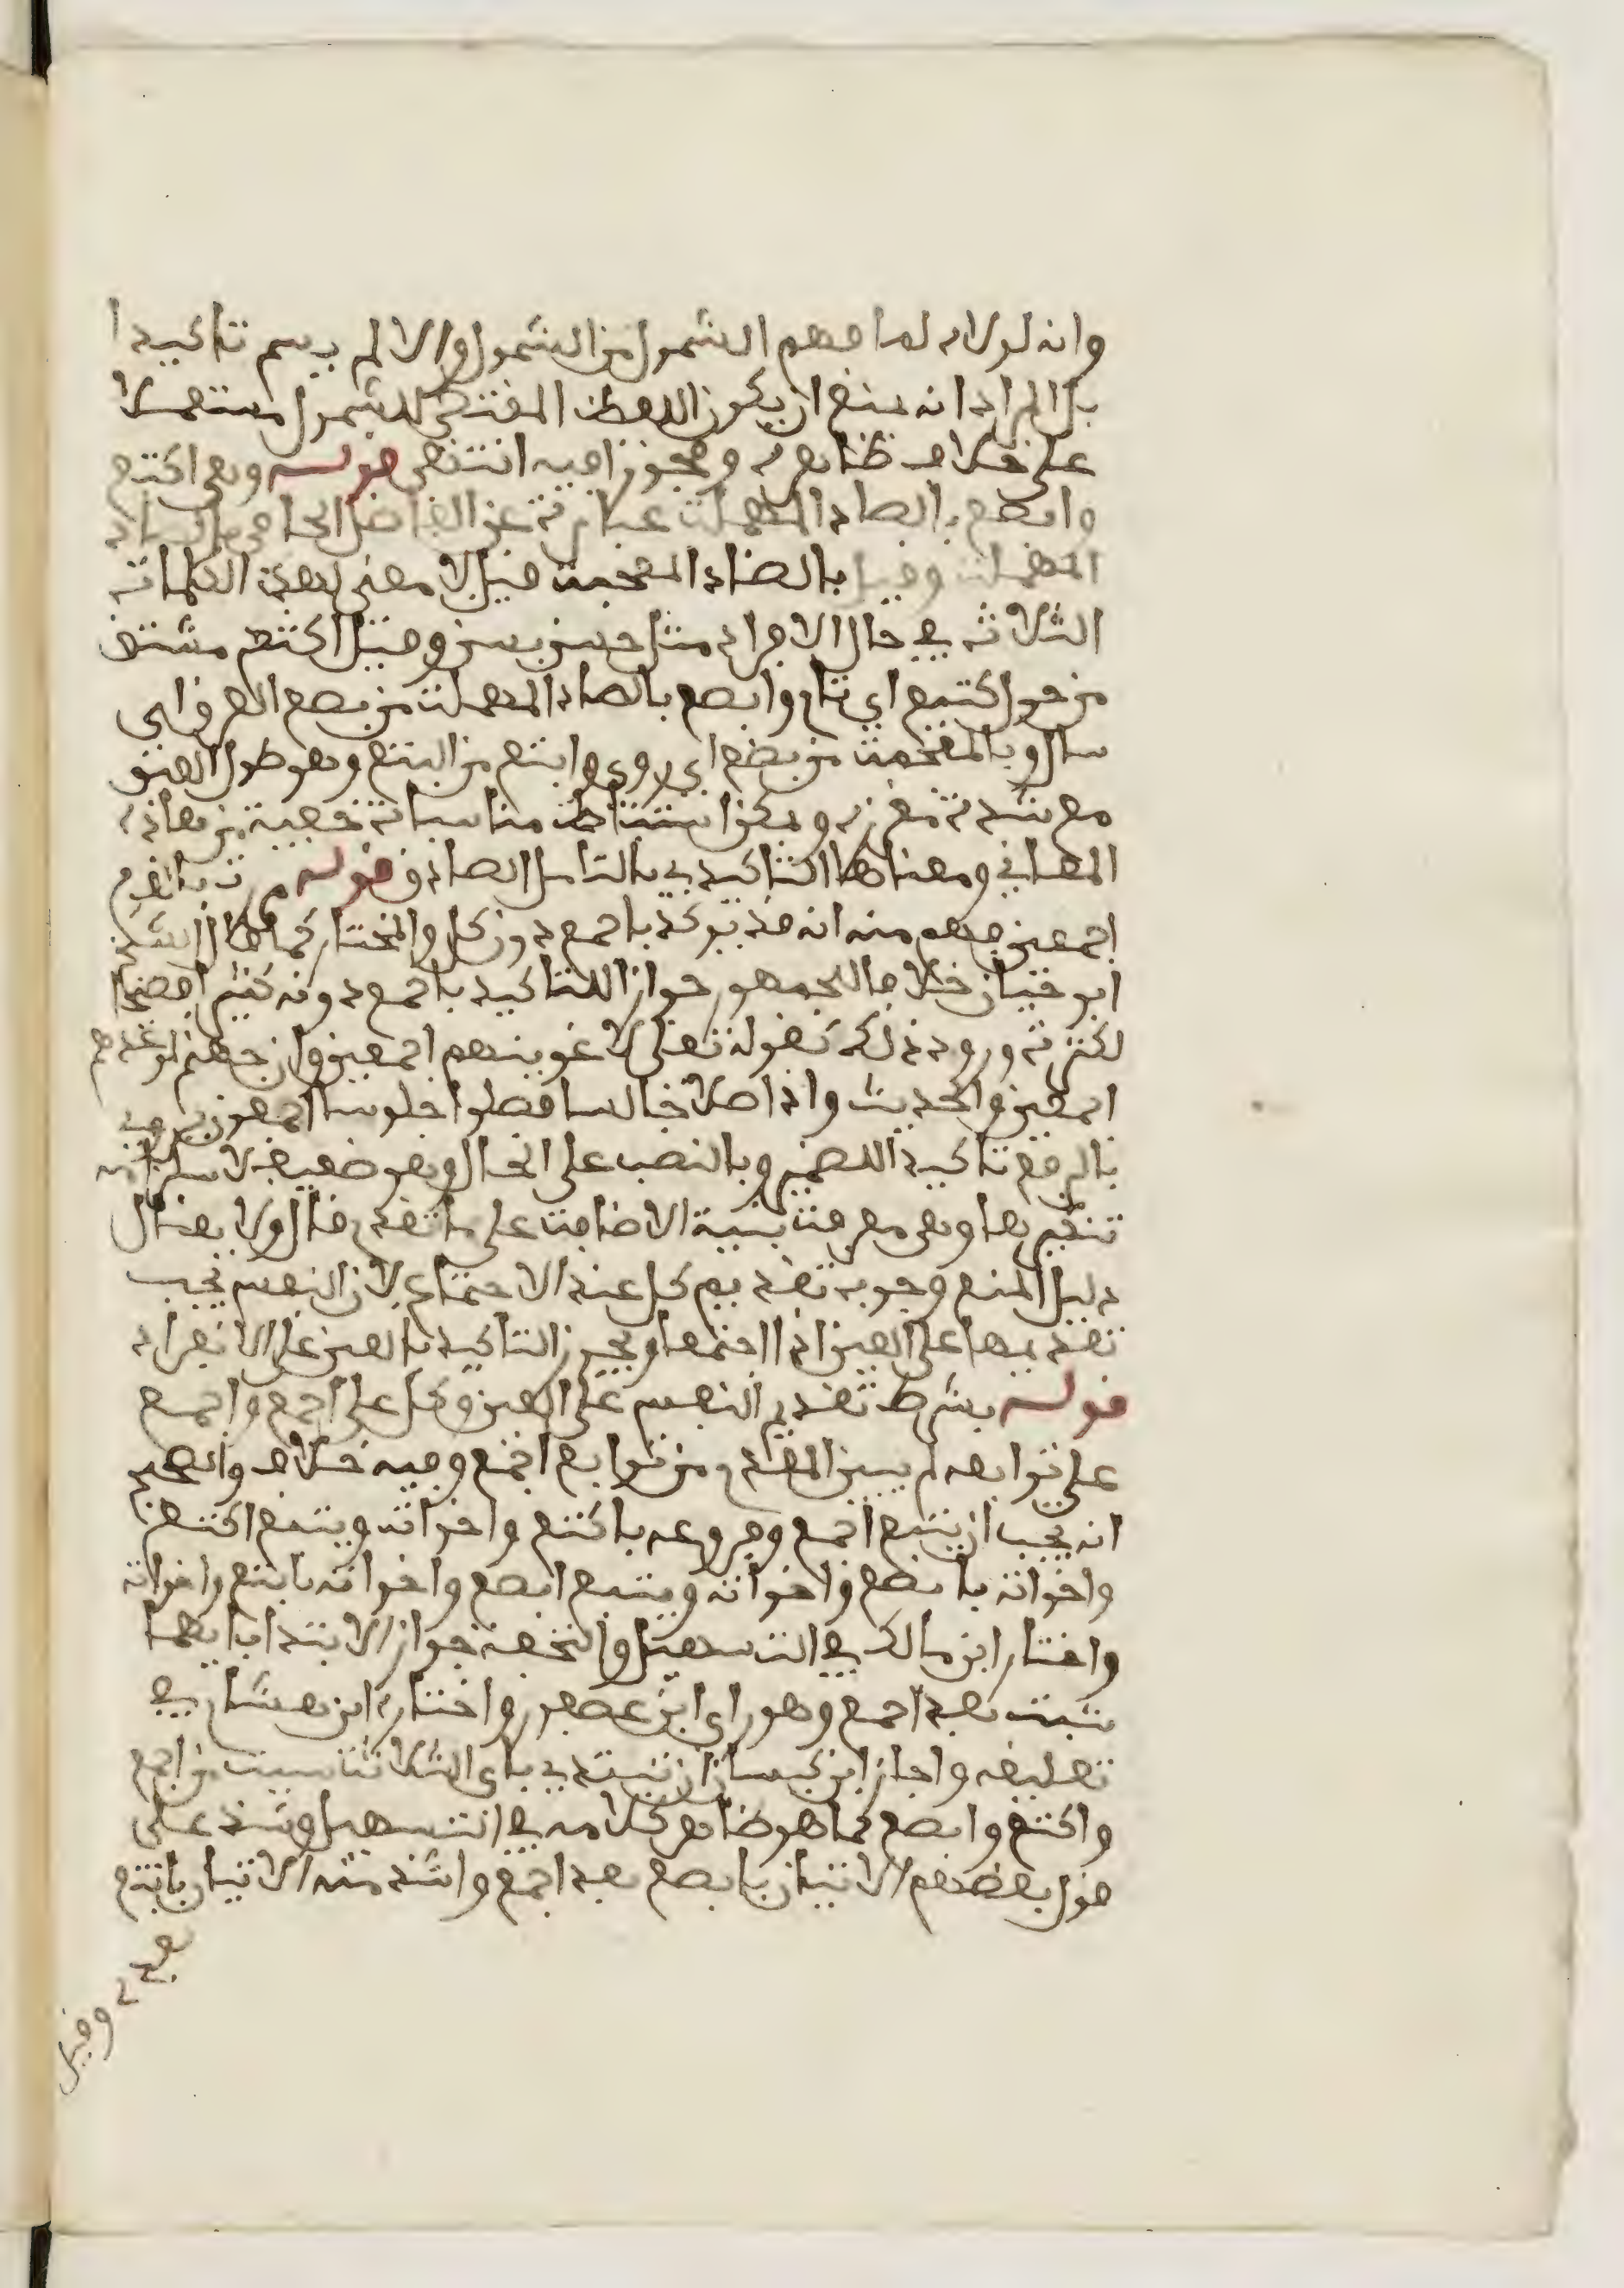 وانه لولاه لما فهم الشمول من الشمول والا لم يسم تاكيدا
بل المراد انه يمنع ان يكون اللفظ المقتضي للشمول مستعملا
على خلاف ظاهره ومجوزا فيه انتهى قوله وهي اكتع
وابصع بالصاد المهملة عبارة عن الفاضل الجامي بالصاد
المهملة وقيل بالضاد المعجمة قيل لا معنى لهذه الكلمات
الثلاثة في حال الافراد مثل حسن بسن وقيل اكتع مشتق
من حول كتيع اي تام وابصع بالصاد المهملة من بصع العرق اي
سال وبالمعجمة من بضع اي روي وابتع من البتع وهو طول العنق
مع شدة مغرزه ويمكن استنباط مناسبات خفية من هاذه
المعاني ومعناها التاكيدي بالتامل الصادق قوله
اجمعين فهم منه انه قد يوكد باجمع دون كل والمختار كما قال الشيخ
ابو حيان خلافا للجمهور جواز التاكيد باجمع دونه كثير افصحا
لكثرة وروده ذلك كقوله تعلى لاغوينهم اجمعين وان جهنم لموعدهم
اجمعين والحديث واذا صلا جالسا فصلوا جلوسا اجمعون يروى
بالرفع تاكيدا للضمير وبالنصب على الحال وهو ضعيف لاستلزامه
تنكيرها وهي معرفة بنية الاضافة على ما تقدم قال ولا يقال
دليل المنع وجوب تقديم كل عند الاجتماع لان النفس يجب
تقديمها على العين اذا اجتمعا ويجوز التاكيد بالعين على الانفراد
قوله بشرط تقديم النفس على العين وكل على اجمع واجمع
على توابعه لم يبين المقدم من توابع اجمع وفيه خلاف والصحيح
انه يجب ان يتبع اجمع وفروعه باكتع واخواته ويتبع اكتع
واخواته بابصع واخواته ويتبع ابصع واخواته بابتع واخواته
واختار ابن مالك في التسهيل والتحفة جواز الابتدا بايها
شيت بعد اجمع وهو راي ابن عصفور واختاره ابن هشام في
تعليقه واجاز ابن كيسان ان تبتدي باي الثلاثة شيت من اجمع
واكتع وابصع كما هو ظاهر كلامه في التسهيل وشذ على
قول بعضهم الاتيان بابصع بعد اجمع واشذ منه الاتيان بابتع
وقيل